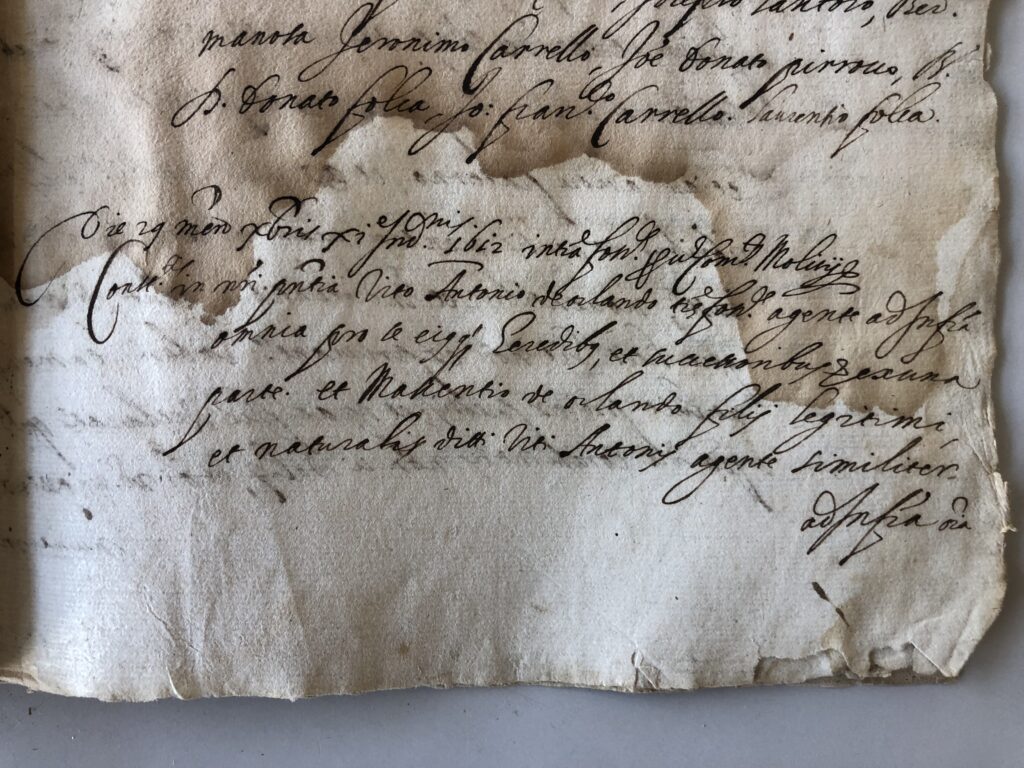 Santoro, Ber.
manota Jeronimo Carrello, Joe donato pirroco,
D. donato folea, Jo: fran.co Carrello. Laurentio folea.
Die 29 mens xbris xj Ind.nis 1612 Molicij
in nri pntia Vito Antonio de orlando agente ad Infra
omnia pro se eiq; Eeredibq, et successoribus ex una
parte. et Maxentio de orlando filij legitimi,
et naturalis ditti Viti Antonij agente similiter
ad Infra oia